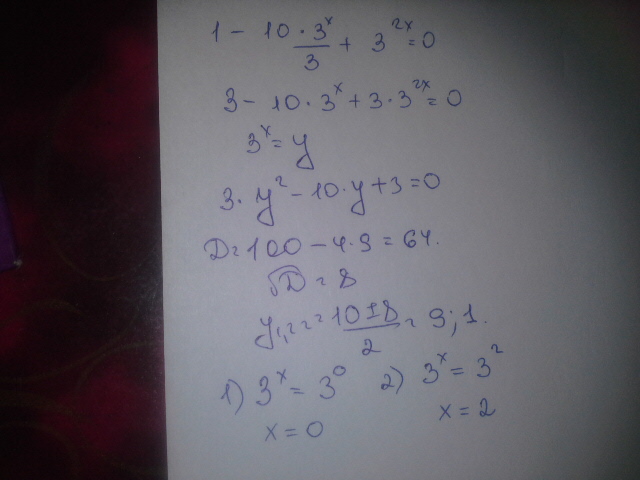 1 - 10 · 3^x / 3 + 3^2x = 0
3 - 10 · 3^x + 3 · 3^2x = 0
3^x = y
3 · y^2 - 10 · y + 3 = 0
D = 100 - 4 · 9 = 64.
√D = 8
y1,2 = = 10 ± 8 / 2 = 9; 1.
1) 3^x = 3^0 2) 3^x = 3^2
x = 0 x = 2